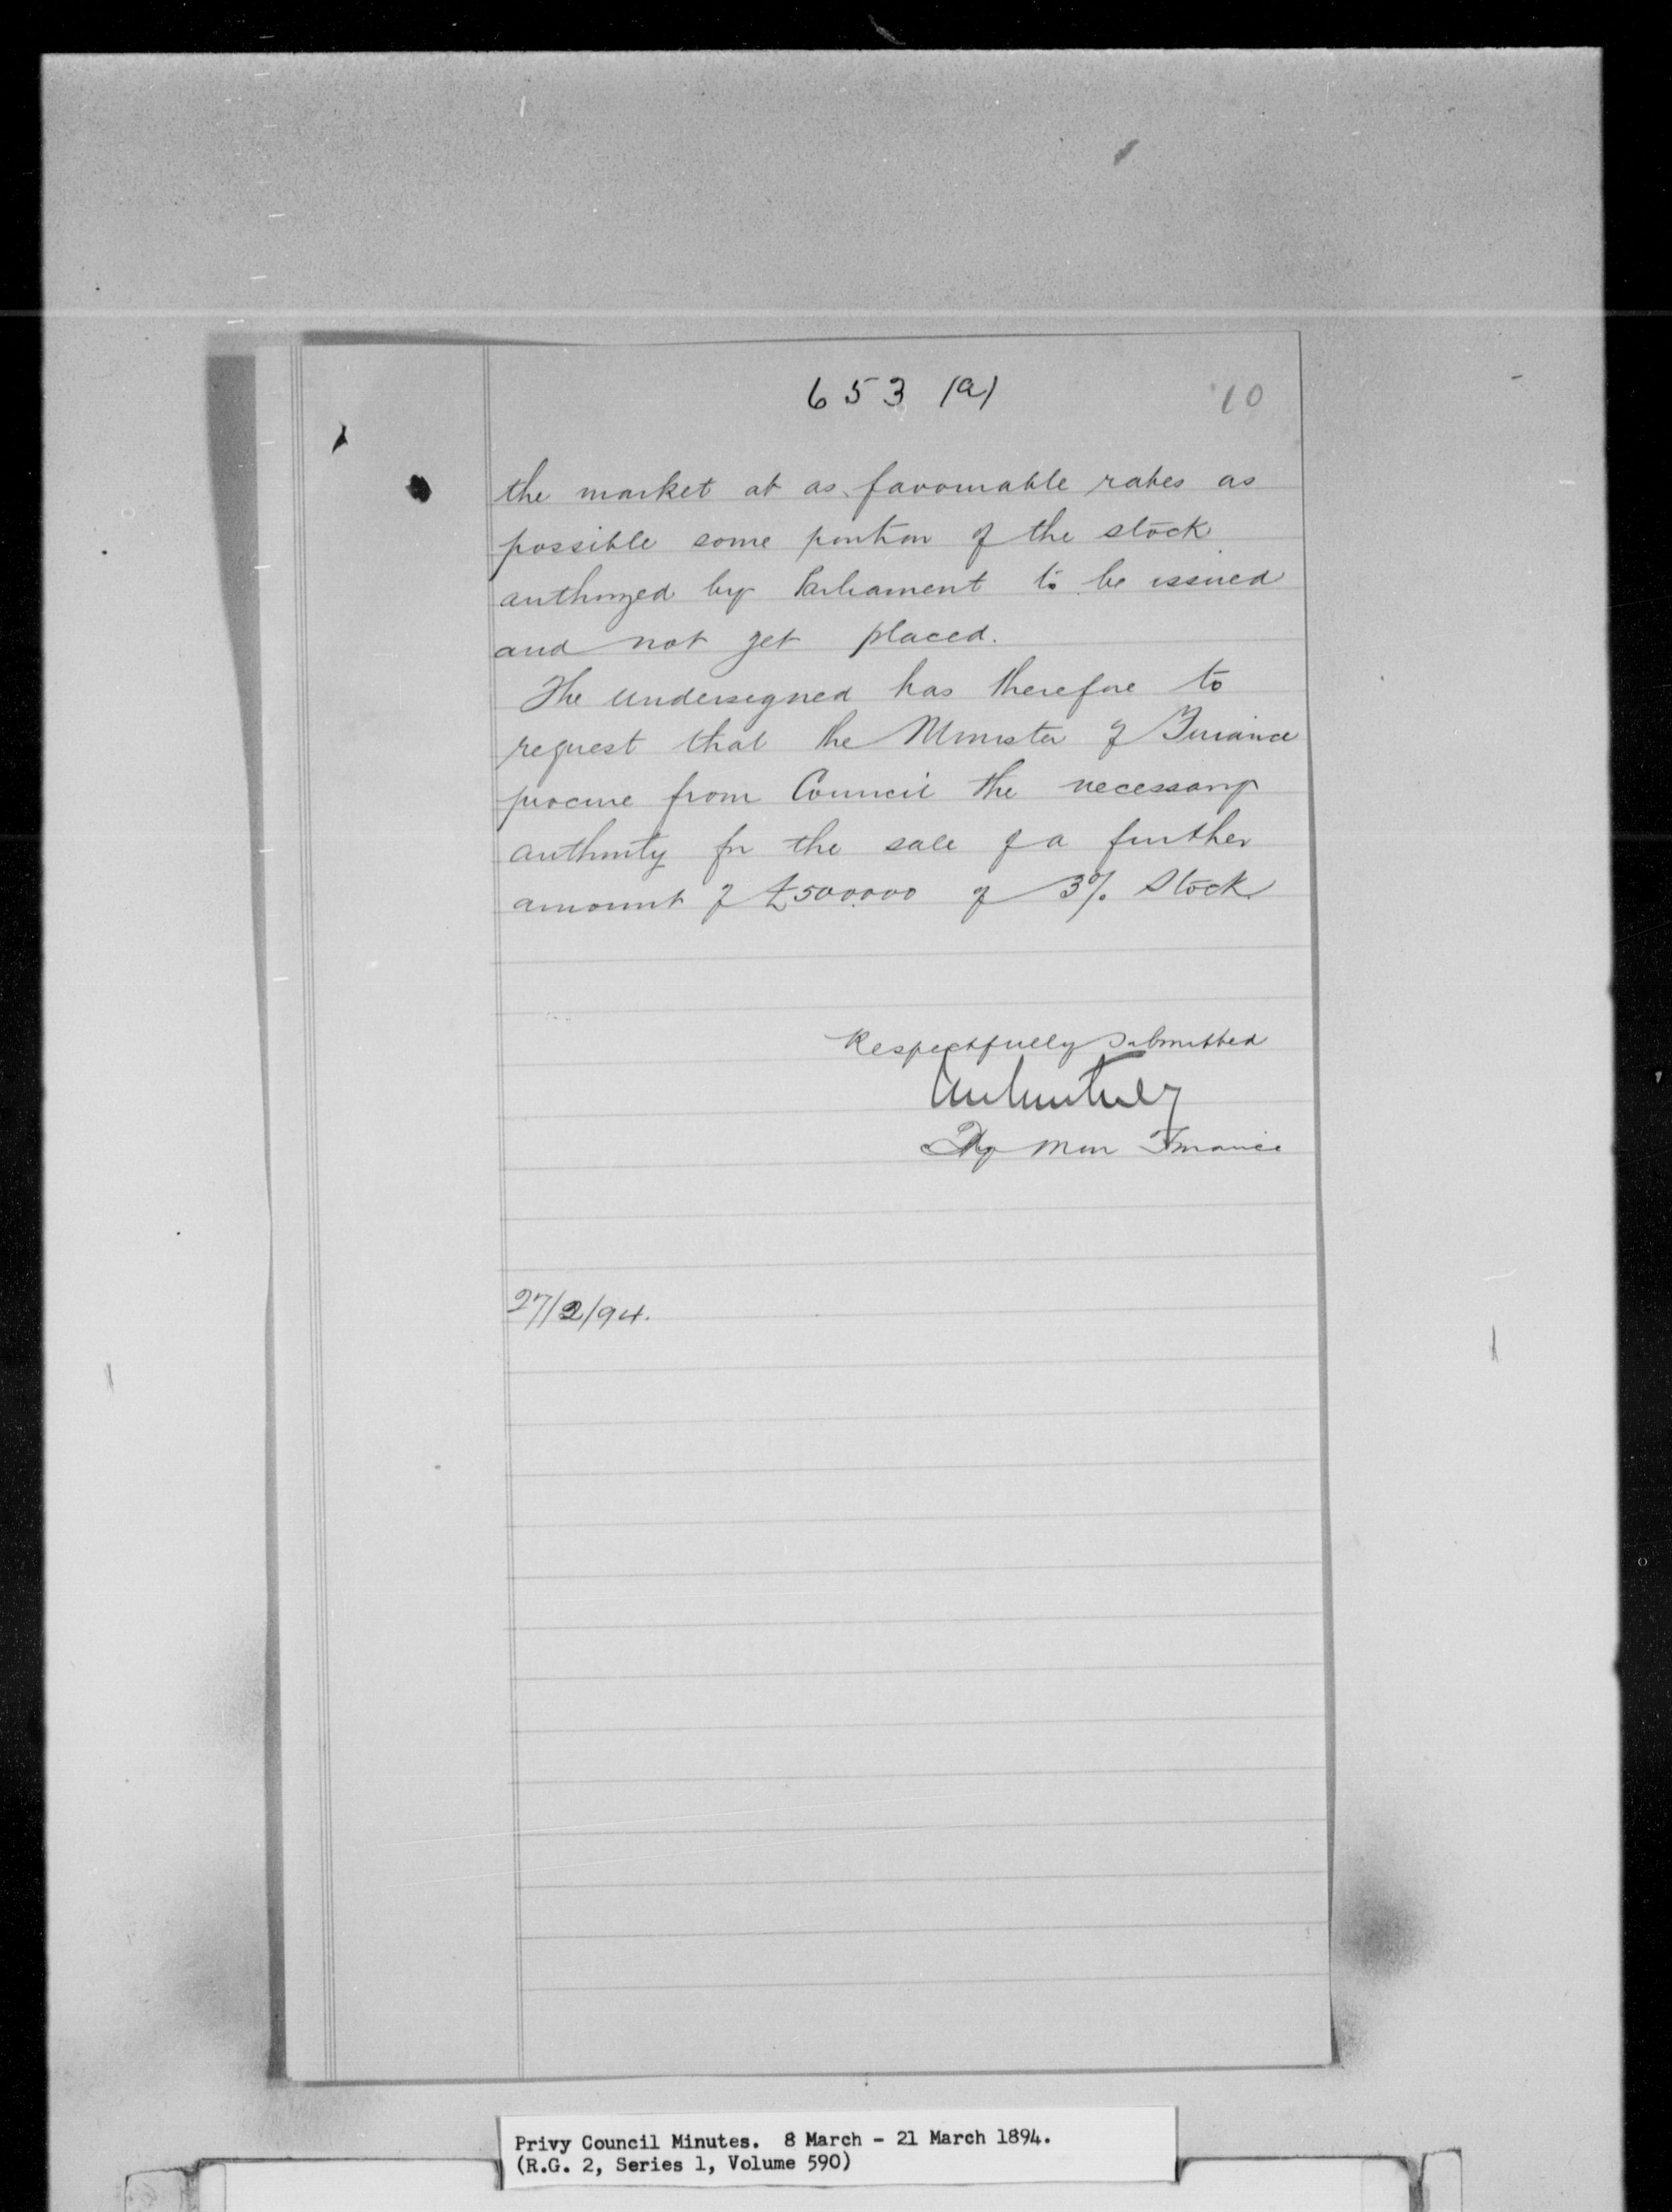 653 (a)
10
the market at as favourable rates as
possible some portion of the stock
authorized by Parliament to be issued
and not yet placed.
The undersigned has therefore to
request that the Minister of Finance
procure from Council the necessary
authority for the sale of a further
amount of £500.000 of 3% Stock
Respectfully submitted
Dy Min Finance
27/2/94.
Privy Council Minutes. 8 March - 21 March 1894.
(R.G. 2, Series 1, Volume 590)